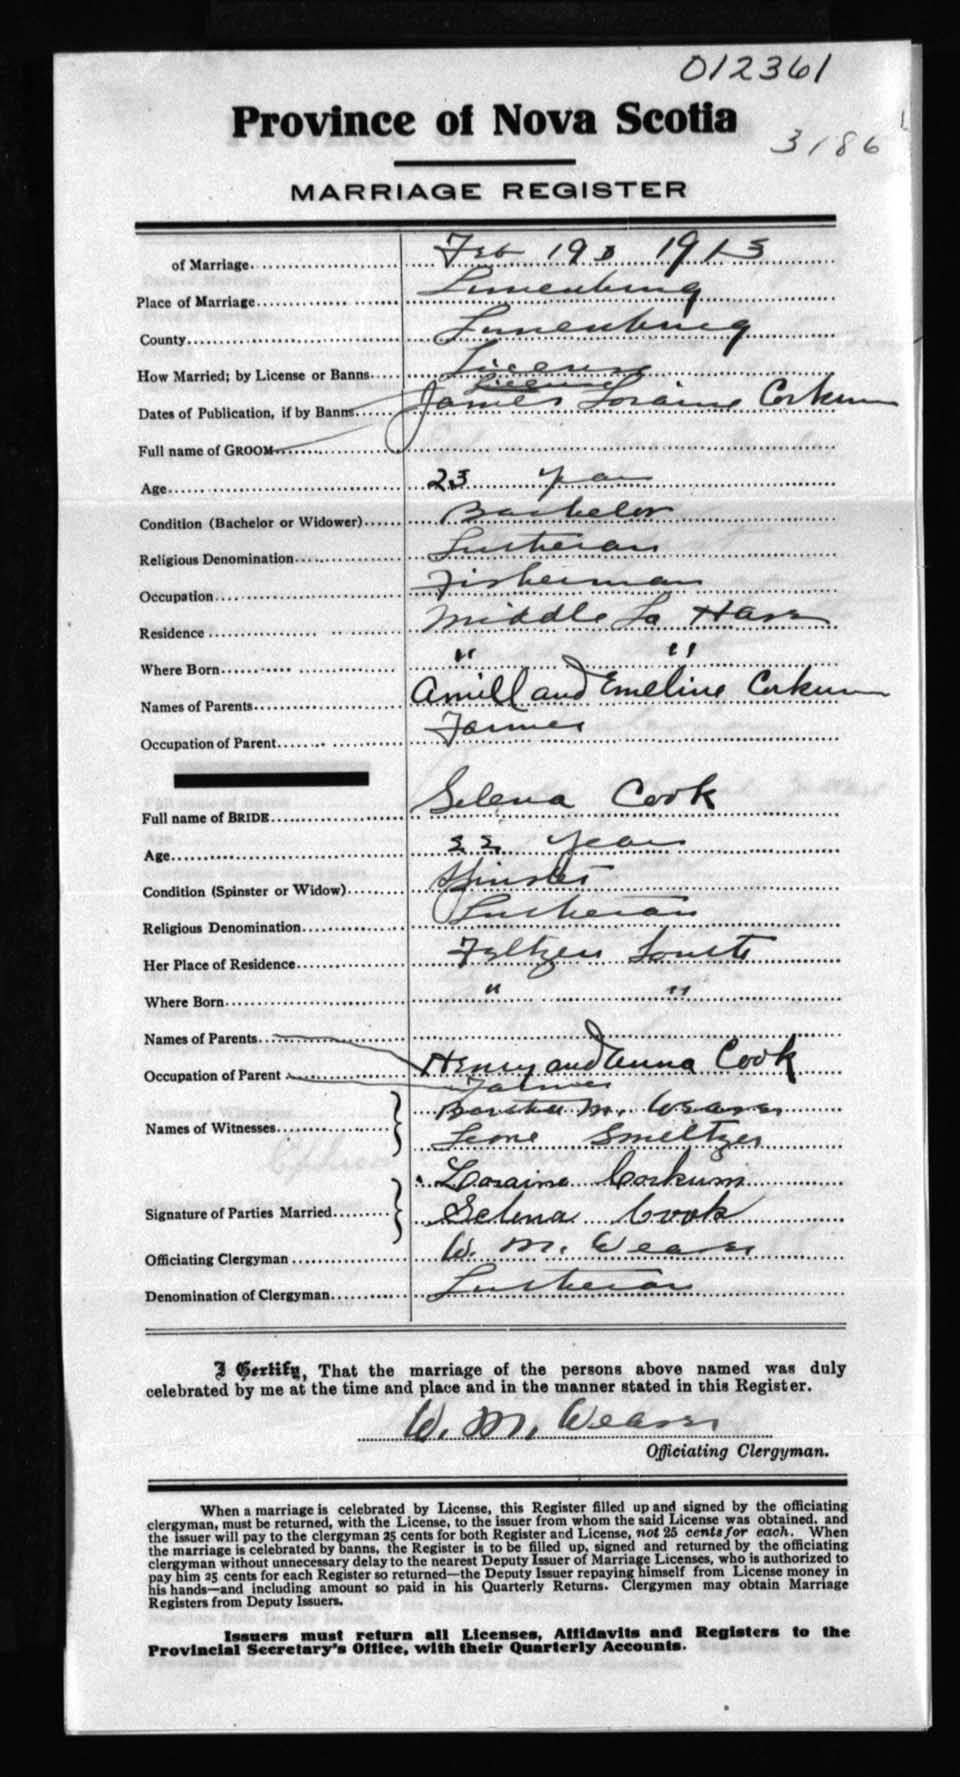 012361
Province of Nova Scotia
3186
MARRIAGE REGISTER
of Marriage Feb 19 1913
Place of Marriage Lunenburg
County Lunenburg
How Married; by License or Banns License
License
Dates of Publication, if by Banns James Loraine Corkum
Full name of GROOM
Age 23 years
Condition (Bachelor or Widower) Bachelor
Religious Denomination Lutheran
Occupation Fisherman
Residence Middle La Have
Where Born " "
Names of Parents Amill and Emeline Corkum
Occupation of Parent Farmer
Full name of BRIDE Selena Cook
Age 22 years
Condition (Spinster or Widow) Spinster
Religious Denomination Lutheran
Her Place of Residence Feltzen South
Where Born " "
Names of Parents
Occupation of Parent Henry and Anna Cook
Farmer
Names of Witnesses M. Weaver
Leone Smeltzer
Signature of Parties Married Loraine Corkum
Selena Cook
Officiating Clergyman W. M. Weaver
Denomination of Clergyman Lutheran
I Certify, That the marriage of the persons above named was duly
celebrated by me at the time and place and in the manner stated in this Register.
W. M. Weaver
Officiating Clergyman.
When a marriage is celebrated by License, this Register filled up and signed by the officiating
clergyman, must be returned, with the License, to the issuer from whom the said License was obtained, and
the issuer will pay to the clergyman 25 cents for both Register and License, not 25 cents for each. When
the marriage is celebrated by banns, the Register is to be filled up, signed and returned by the officiating
clergyman without unnecessary delay to the nearest Deputy Issuer of Marriage Licenses, who is authorized to
pay him 25 cents for each Register so returned—the Deputy Issuer repaying himself from License money in
his hands—and including amount so paid in his Quarterly Returns. Clergymen may obtain Marriage
Registers from Deputy Issuers.
Issuers must return all Licenses, Affidavits and Registers to the
Provincial Secretary's Office, with their Quarterly Accounts.